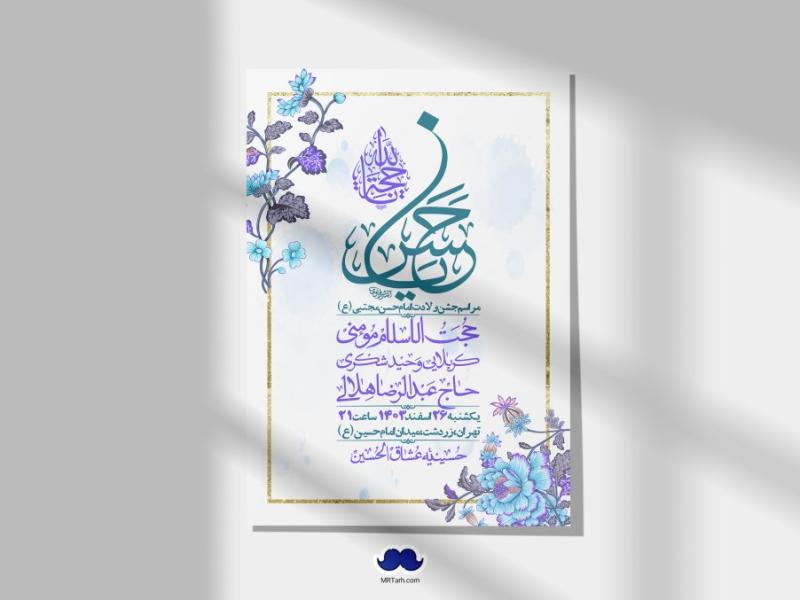 یا حجة الله
یا حسن
مراسم جشن ولادت امام حسن مجتبی (ع)
حجت الاسلام مومنی
کربلایی وحید شکری
حاج عبدالرضا هلالی
یکشنبه ۲۶ اسفند ۱۴۰۳ ساعت ۲۱
تهران، زردشت، میدان امام حسین (ع)
حسینیه عشاق الحسین
MRTarh.com